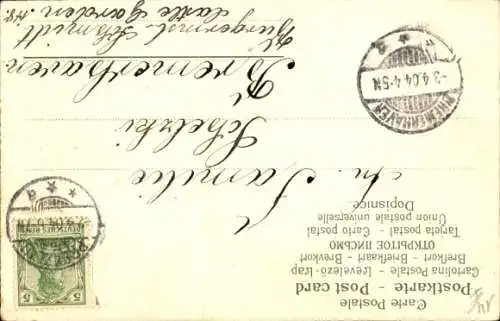 Carte Postale
Postkarte - Post card
Cartolina Postale - Levelező-lap
Brefkort - Briefkaart - Brevkort
ОТКРЫТОЕ ПИСЬМО
Tarjeta postal - Carto postal
Union postale universelle
Dopisnice
Familie
Schelzki
Bremerhaven
Bürgermstr. Schmidt
BREMERHAVEN
-3.4.04.4-5N
* a
DEUTSCHES REICH
5 5